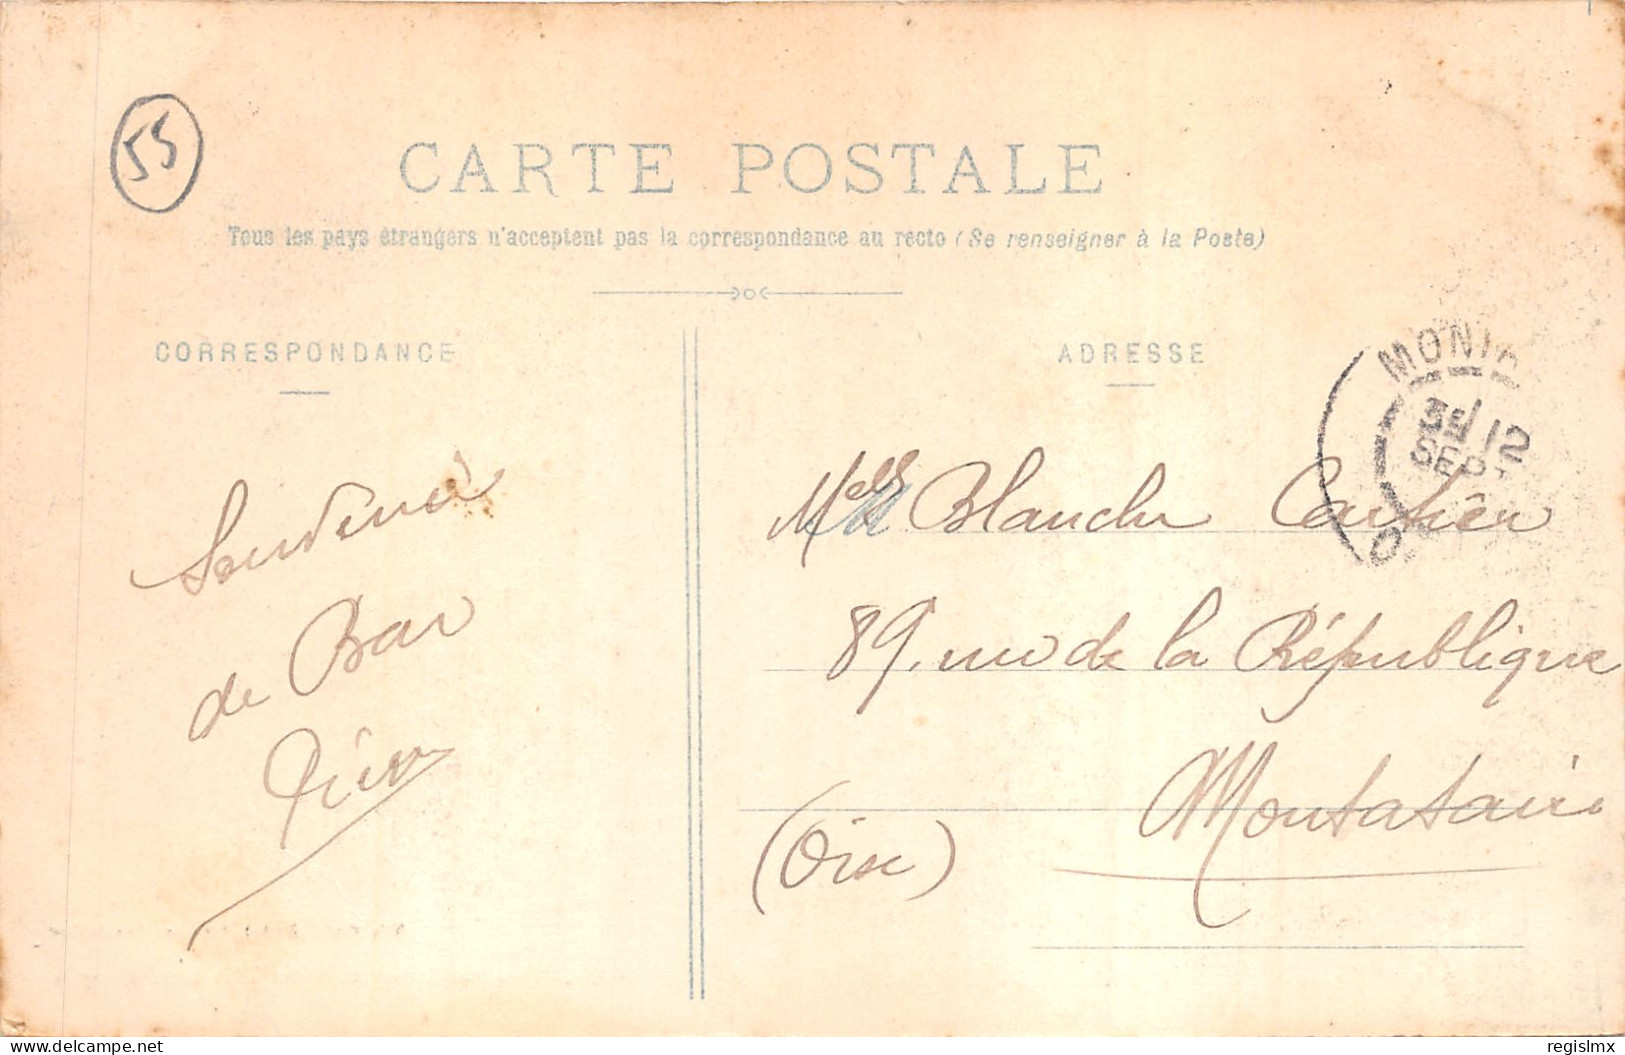 55
CARTE POSTALE
Tous les pays étrangers n'acceptent pas la correspondance au recto (Se renseigner à la Poste)
CORRESPONDANCE
ADRESSE
12
SEPT
Souvenir
de Bar
Melle Blanche
89, rue de la République
Montataire
(Oise)
delcampe.net
regislmx